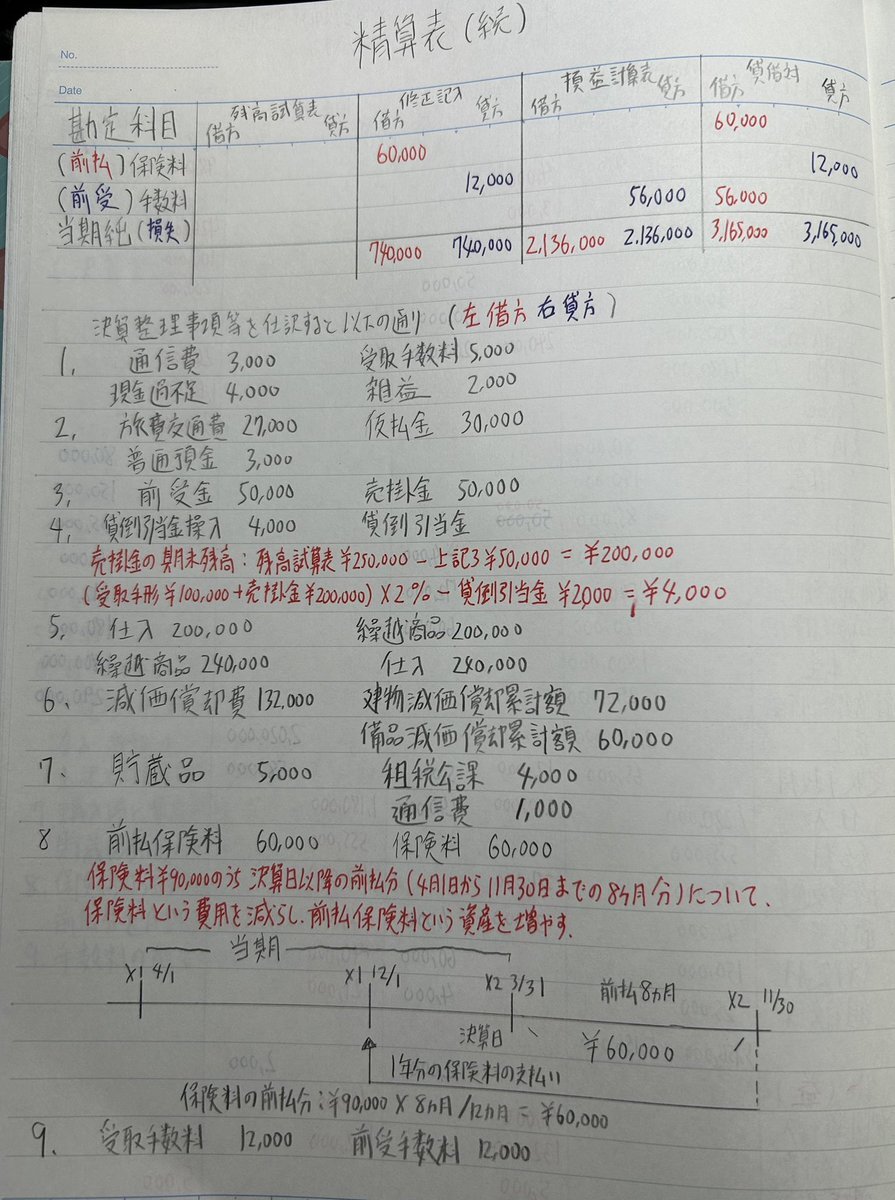 精算表(続)
No.
Date
勘定科目 残高試算表 修正記入 損益計算表 貸借対
借方 貸方 借方 貸方 借方 貸方 借方 貸方
(前払)保険料 60,000 60,000
(前受)手数料 12,000 12,000
当期純(損失) 56,000 56,000
740,000 740,000 2,136,000 2,136,000 3,165,000 3,165,000
決算整理事項等を仕訳すると以下の通り (左借方 右貸方)
1. 通信費 3,000 受取手数料 5,000
現金過不足 4,000 雑益 2,000
2. 旅費交通費 27,000 仮払金 30,000
普通預金 3,000
3. 前受金 50,000 売掛金 50,000
4. 貸倒引当金繰入 4,000 貸倒引当金
売掛金の期末残高:残高試算表¥250,000-上記3¥50,000=¥200,000
(受取手形¥100,000+売掛金¥200,000)×2%-貸倒引当金 ¥2,000=¥4,000
5. 仕入 200,000 繰越商品 200,000
繰越商品 240,000 仕入 240,000
6. 減価償却費 132,000 建物減価償却累計額 72,000
備品減価償却累計額 60,000
7. 貯蔵品 5,000 租税公課 4,000
通信費 1,000
8 前払保険料 60,000 保険料 60,000
保険料¥90,000のうち決算日以降の前払分(4月1日から11月30日までの8ヶ月分)について、
保険料という費用を減らし、前払保険料という資産を増やす。
当期
X1 4/1 X1 12/1 X2 3/31 前払8ヵ月 X2 11/30
決算日 ¥60,000
1年分の保険料の支払い
保険料の前払分:¥90,000×8ヵ月/12ヵ月=¥60,000
9. 受取手数料 12,000 前受手数料 12,000